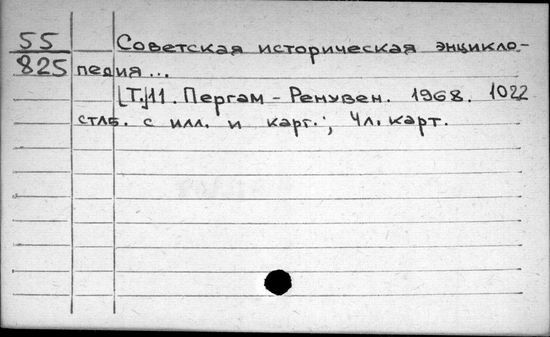 55 Советская историческая энцикло-
825 педия...
[Т.]11. Пергам - Ренувен. 1968. 1022
стлб. с илл. и карт.; 4 л. карт.